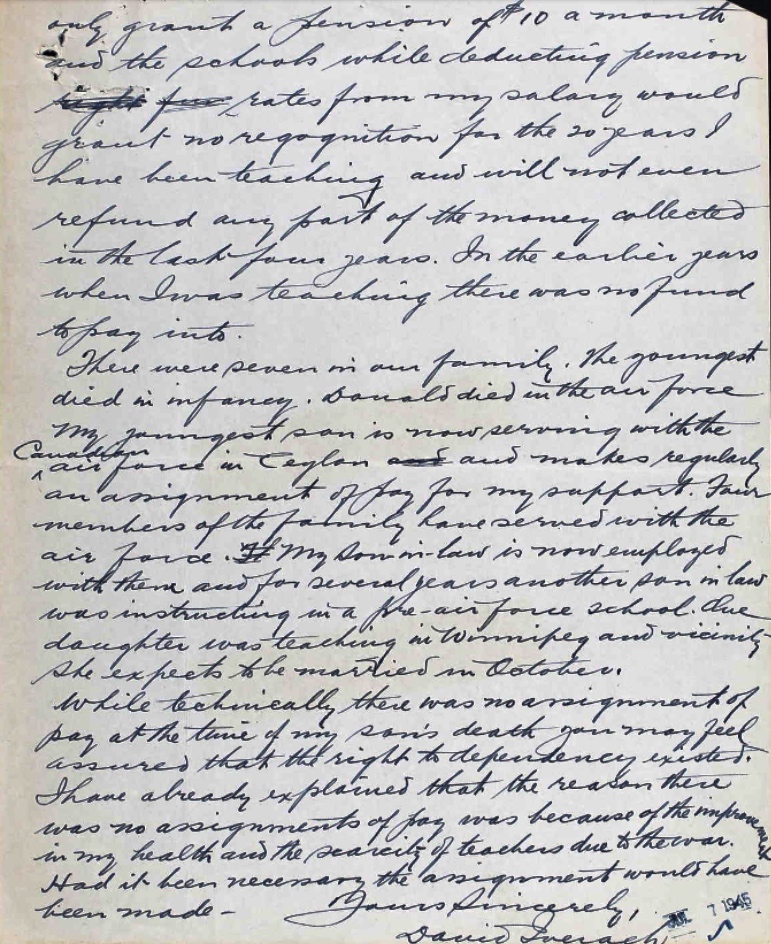 only grant a pension of $10 a month
and the schools while deducting pension
right for rates from my salary would
grant no regognition for the 20 years I
have been teaching and will not even
refund any part of the money collected
in the last four years. In the earlier years
when I was teaching there was no fund
to pay into.
There were seven in our family. The youngest
died in infancy. Donald died in the air force
My youngest son is now serving with the
Canadian
air force in Ceylon and and makes regularly
an assignment of pay for my support. Four
members of the family have served with the
air force. My son-in-law is now employed
with them and for several years another son in law
was instructing in a pre-air force school. One
daughter was teaching in Winnipeg and vicinity
She expects to be married in October.
While technically there was no assignment of
pay at the time of my son's death you may feel
assured that the right to dependency existed.
I have already explained that the reason there
was no assignments of pay was because of the improvement
in my health and the scarcity of teachers due to the war.
Had it been necessary the assignment would have
been made - Yours Sincerely,
7 1945
David Iverach